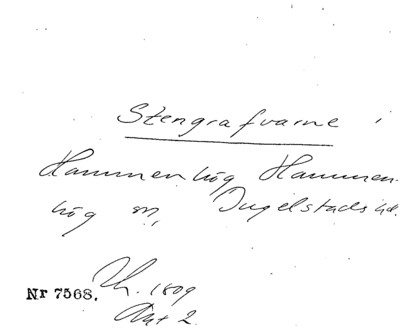 Stengrafvarne i
Hammenhög Hammen-
hög sn, Ingelstads hd.
Nr 7568. Th. 1809
Ant 2